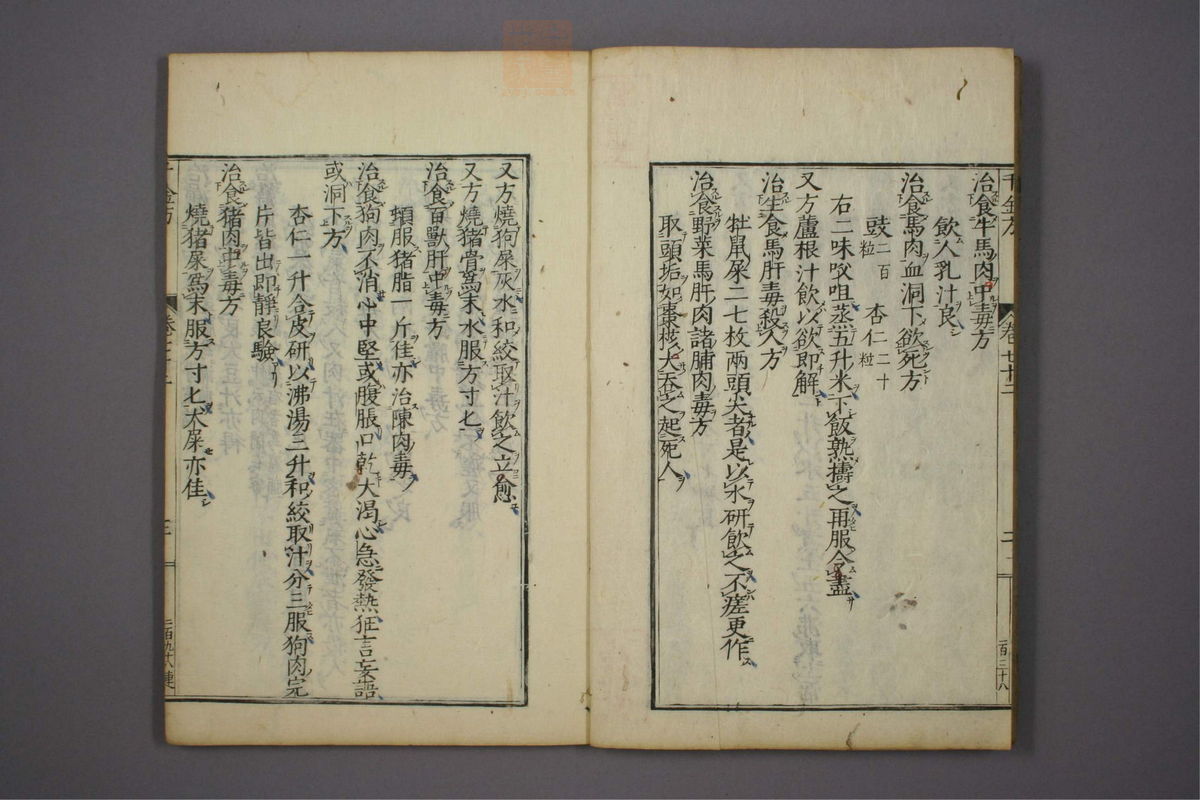 治食牛馬肉中毒方
飲人乳汁良
治食馬肉血洞下欲死方
豉二百粒 杏仁二十粒
右二味㕮咀蒸五升米下飯熟擣之再服令盡
又方蘆根汁飲以欲即解
治生食馬肝毒殺人方
牡鼠屎二七枚兩頭尖者是以水研飲之不瘥更作
治食野菜馬肝肉諸脯肉毒方
取頭垢如棗核大吞之起死人
千金方 卷七十二 二
又方燒狗屎灰水和絞取汁飲之立愈
又方燒猪骨爲末水服方寸匕
治食百獸肝中毒方
頓服猪脂一斤佳亦治陳肉毒
治食狗肉不消心中堅或腹脹口乾大渴心急發熱狂言妄語
或洞下方
杏仁一升合皮研以沸湯三升和絞取汁分三服狗肉完
片皆出即靜良驗
治食猪肉中毒方
燒猪屎爲末服方寸匕犬屎亦佳